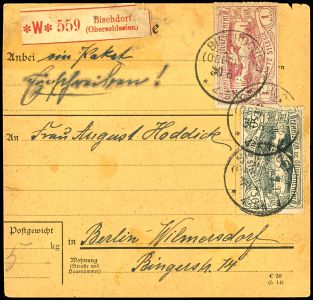 *W* 559 Bischdorf
(Oberschlesien)
e
Anbei ein Paket
Einschreiben!
An Frau August Hoddick
Postgewicht
kg
5
in Berlin Wilmersdorf
Wohnung
(Straße und
Hausnummer)
Bingerstr. 74
C 20
(5. 14)